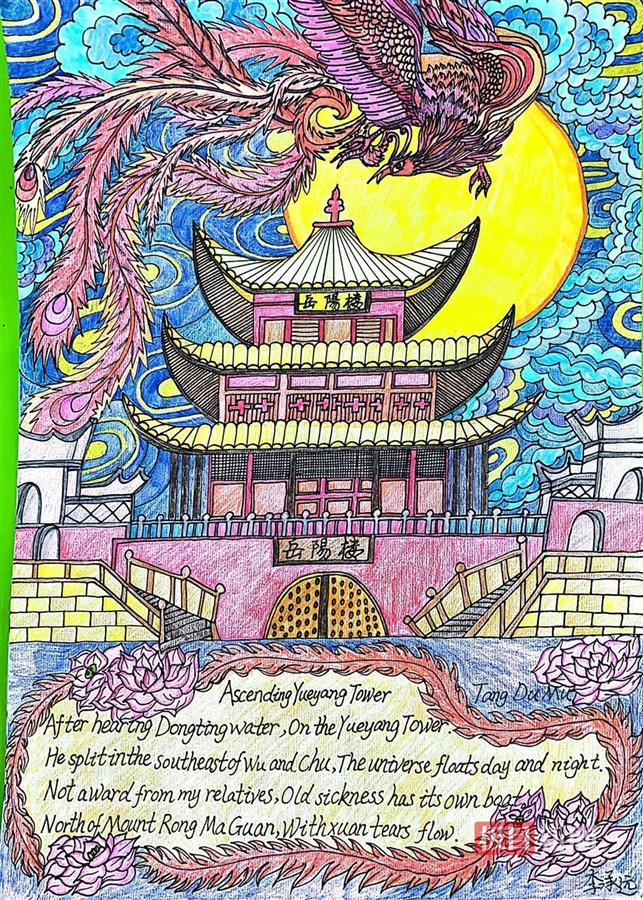 岳陽楼
岳陽楼
Ascending Yueyang Tower
Tang Du
After hearing Dongting water, On the Yueyang Tower.
He split in the southeast of Wu and Chu, The universe floats day and night.
Not a word from my relatives, Old sickness has its own boat
North of Mount Rong Ma Guan, With xuan tears flow.